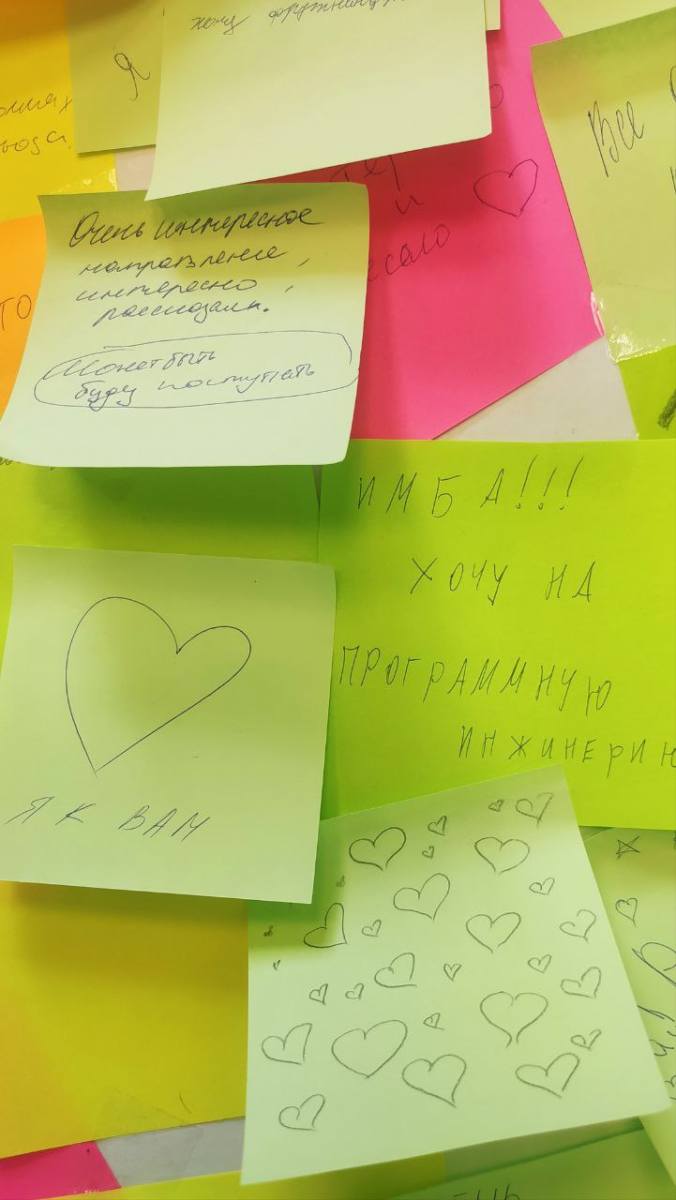 хочу
Я
Все
и
Очень интересное
направление,
интересно
рассказали.
Может быть
буду поступать
ИМБА!!!
ХОЧУ НА
ПРОГРАММНУЮ
ИНЖИНЕРИЮ
Я К ВАМ